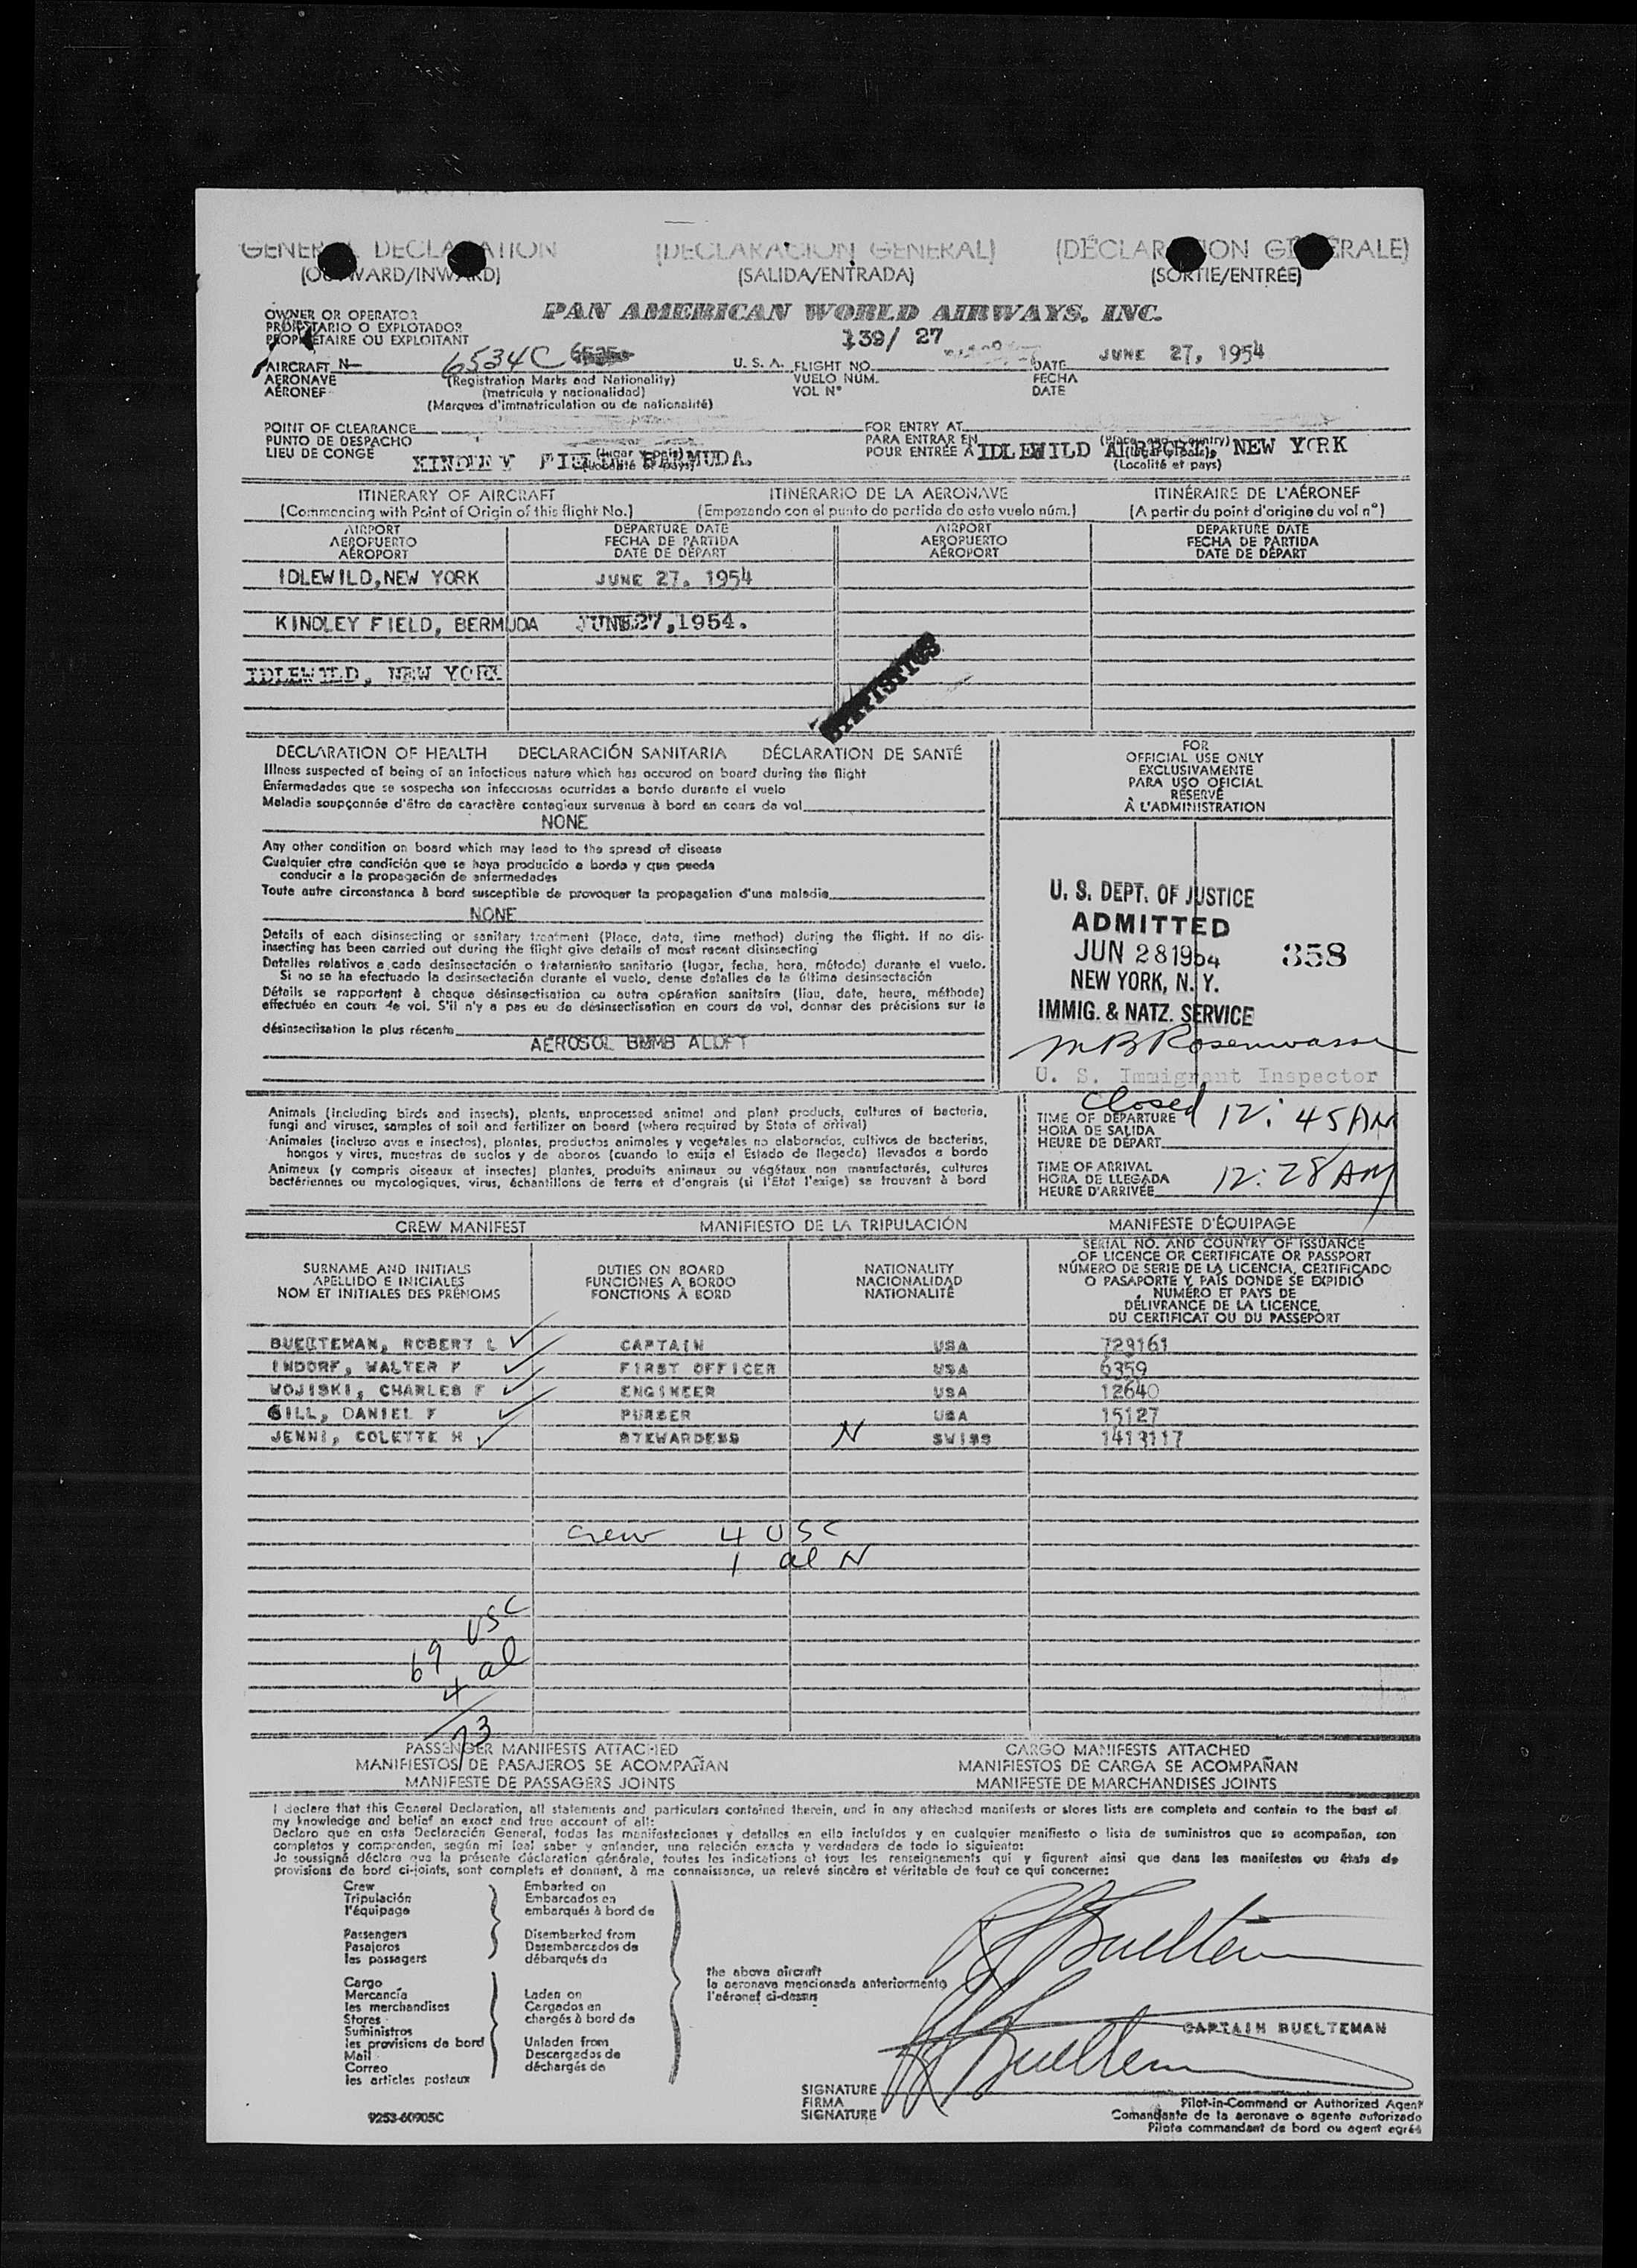 GENERAL DECLARATION (DECLARACION GENERAL) (DÉCLARATION GÉNÉRALE)
(OUTWARD/INWARD) (SALIDA/ENTRADA) (SORTIE/ENTRÉE)
OWNER OR OPERATOR
PROPIETARIO O EXPLOTADOR
PROPRIÉTAIRE OU EXPLOITANT
PAN AMERICAN WORLD AIRWAYS, INC.
139/ 27
AIRCRAFT N- 6534C U. S. A. FLIGHT NO. DATE JUNE 27, 1954
AERONAVE (Registration Marks and Nationality) VUELO NÚM. FECHA
AÉRONEF (matrícula y nacionalidad) VOL N° DATE
(Marques d'immatriculation ou de nationalité)
POINT OF CLEARANCE FOR ENTRY AT
PUNTO DE DESPACHO PARA ENTRAR EN (Place and Country)
LIEU DE CONGÉ KINDLEY FIELD BERMUDA. POUR ENTRÉE A IDLEWILD AIRPORT, NEW YORK
(Localité et pays)
ITINERARY OF AIRCRAFT ITINERARIO DE LA AERONAVE ITINÉRAIRE DE L'AÉRONEF
(Commencing with Point of Origin of this flight No.) (Empezando con el punto de partida de este vuelo núm.) (A partir du point d'origine du vol n°)
AIRPORT DEPARTURE DATE AIRPORT DEPARTURE DATE
AEROPUERTO FECHA DE PARTIDA AEROPUERTO FECHA DE PARTIDA
AÉROPORT DATE DE DÉPART AÉROPORT DATE DE DÉPART
IDLEWILD, NEW YORK JUNE 27, 1954
KINDLEY FIELD, BERMUDA JUNE 27, 1954.
IDLEWILD, NEW YORK
STATISTICS
DECLARATION OF HEALTH DECLARACIÓN SANITARIA DÉCLARATION DE SANTÉ
Illness suspected of being of an infectious nature which has occured on board during the flight
Enfermedades que se sospecha son infecciosas ocurridas a bordo durante el vuelo
Maladie soupçonnée d'être de caractère contagieux survenue à bord en cours de vol
NONE
Any other condition on board which may lead to the spread of disease
Cualquier otra condición que se haya producido a bordo y que pueda
conducir a la propagación de enfermedades
Toute autre circonstance à bord susceptible de provoquer la propagation d'une maladie
NONE
Details of each disinsecting or sanitary treatment (Place, date, time method) during the flight. If no dis-
insecting has been carried out during the flight give details of most recent disinsecting
Detalles relativos a cada desinsectación o tratamiento sanitario (lugar, fecha, hora, método) durante el vuelo.
Si no se ha efectuado la desinsectación durante el vuelo, dense detalles de la última desinsectación
Détails se rapportant à chaque désinsectisation ou autre opération sanitaire (lieu, date, heure, méthode)
effectuée en cours de vol. S'il n'y a pas eu de désinsectisation en cours de vol, donner des précisions sur la
désinsectisation la plus récente
AEROSOL BMMB ALOFT
FOR
OFFICIAL USE ONLY
EXCLUSIVAMENTE
PARA USO OFICIAL
RÉSERVÉ
À L'ADMINISTRATION
U. S. DEPT. OF JUSTICE
ADMITTED
JUN 28 1954 358
NEW YORK, N. Y.
IMMIG. & NATZ. SERVICE
M B Rosenwasser
U. S. Immigrant Inspector
Animals (including birds and insects), plants, unprocessed animal and plant products, cultures of bacteria,
fungi and viruses, samples of soil and fertilizer on board (where required by State of arrival)
Animales (incluso aves e insectos), plantas, productos animales y vegetales no elaborados, cultivos de bacterias,
hongos y virus, muestras de suelos y de abonos (cuando lo exija el Estado de llegada) llevados a bordo
Animaux (y compris oiseaux et insectes) plantes, produits animaux ou végétaux non manufacturés, cultures
bactériennes ou mycologiques, virus, échantillons de terre et d'engrais (si l'État l'exige) se trouvant à bord
Closed 12:45 AM
TIME OF DEPARTURE
HORA DE SALIDA
HEURE DE DÉPART
TIME OF ARRIVAL 12:28 AM
HORA DE LLEGADA
HEURE D'ARRIVÉE
CREW MANIFEST MANIFIESTO DE LA TRIPULACIÓN MANIFESTE D'ÉQUIPAGE
SURNAME AND INITIALS
APELLIDO E INICIALES
NOM ET INITIALES DES PRÉNOMS
DUTIES ON BOARD
FUNCIONES A BORDO
FONCTIONS À BORD
NATIONALITY
NACIONALIDAD
NATIONALITÉ
SERIAL NO. AND COUNTRY OF ISSUANCE
OF LICENCE OR CERTIFICATE OR PASSPORT
NÚMERO DE SERIE DE LA LICENCIA, CERTIFICADO
O PASAPORTE Y PAÍS DONDE SE EXPIDIÓ
NUMÉRO ET PAYS DE
DÉLIVRANCE DE LA LICENCE,
DU CERTIFICAT OU DU PASSEPORT
BUELTEMAN, ROBERT L CAPTAIN USA 729161
INDORF, WALTER F FIRST OFFICER USA 6359
WOJISKI, CHARLES F ENGINEER USA 12640
GILL, DANIEL F PURSER USA 15127
JENNI, COLETTE H STEWARDESS N SWISS 1413117
Crew 4 USC
1 al N
69 USC
4 al
73
PASSENGER MANIFESTS ATTACHED CARGO MANIFESTS ATTACHED
MANIFIESTOS DE PASAJEROS SE ACOMPAÑAN MANIFIESTOS DE CARGA SE ACOMPAÑAN
MANIFESTE DE PASSAGERS JOINTS MANIFESTE DE MARCHANDISES JOINTS
I declare that this General Declaration, all statements and particulars contained therein, and in any attached manifests or stores lists are complete and contain to the best of
my knowledge and belief an exact and true account of all:
Declaro que en esta Declaración General, todas las manifestaciones y detalles en ella incluídos y en cualquier manifiesto o lista de suministros que se acompañan, son
completos y comprenden, según mi leal saber y entender, una relación exacta y verdadera de todo lo siguiente:
Je soussigné déclare que la présente déclaration générale, toutes les indications et tous les renseignements qui y figurent ainsi que dans les manifestes ou états de
provisions de bord ci-joints, sont complets et donnent, à ma connaissance, un relevé sincère et véritable de tout ce qui concerne:
Crew Embarked on
Tripulación Embarcados en
l'équipage embarqués à bord de
Passengers Disembarked from
Pasajeros Desembarcados de
les passagers débarqués de
the above aircraft
la aeronave mencionada anteriormente
l'aéronef ci-dessus
Cargo
Mercancía Laden on
les merchandises Cargados en
Stores chargés à bord de
Suministros
les provisions de bord Unladen from
Mail Descargados de
Correo déchargés de
les articles postaux
CAPTAIN BUELTEMAN
SIGNATURE
FIRMA
SIGNATURE
Pilot-in-Command or Authorized Agent
Comandante de la aeronave o agente autorizado
Pilote commandant de bord ou agent agréé
9253-60905C